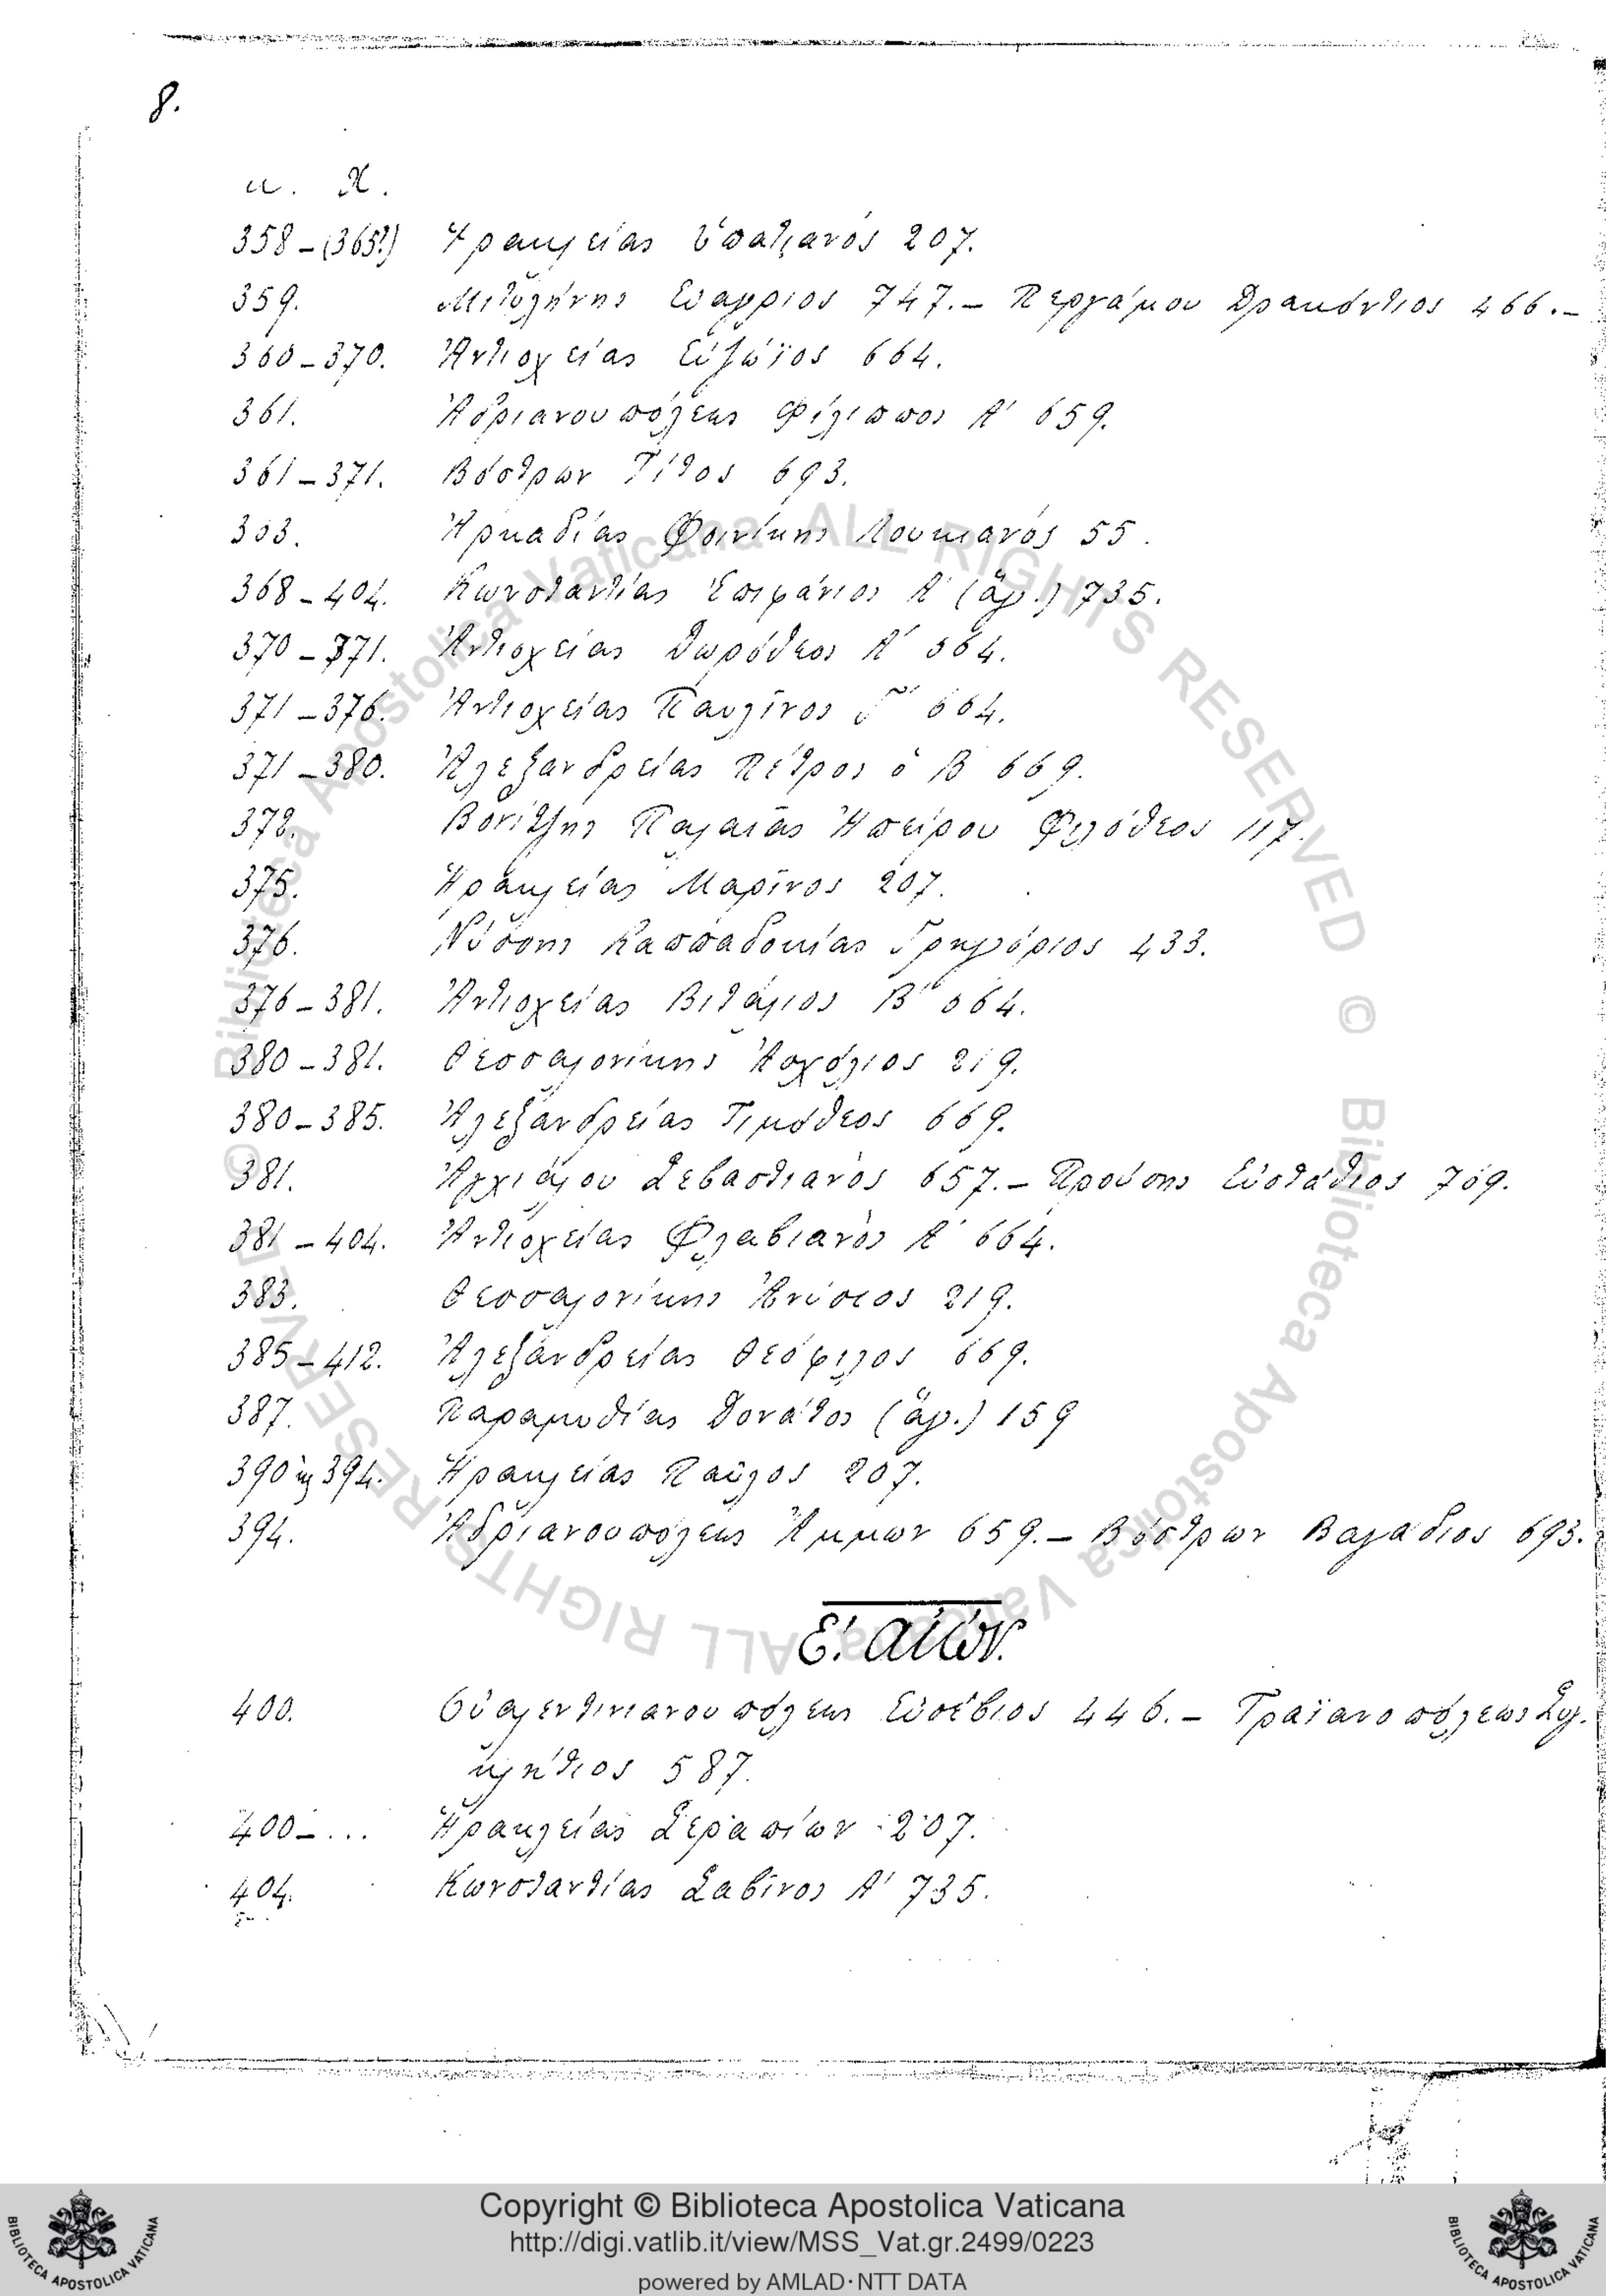 8.
μ. Χ.
358 – (365?) Ἡρακλείας Ὑπατιανός 207.
359. Μιτυλήνης Εὐάγριος 747. – Περγάμου Δρακόντιος 466. –
360 – 370. Ἀντιοχείας Εὐζώϊος 664.
361. Ἀδριανουπόλεως Φίλιππος Α' 659.
361 – 371. Βόστρων Τίτος 693.
363. Ἀρκαδίας Φοινίκης Λουκιανός 55.
368 – 404. Κωνσταντίας Ἐπιφάνιος Α' (ἅγ.) 735.
370 – 371. Ἀντιοχείας Δωρόθεος Α' 664.
371 – 376. Ἀντιοχείας Παυλῖνος Γ' 664.
371 – 380. Ἀλεξανδρείας Πέτρος ὁ Β 669.
372. Βονίτζης Παλαιᾶς Ἠπείρου Φιλόθεος 117.
375. Ἡρακλείας Μαρῖνος 207.
376. Νύσσης Καππαδοκίας Γρηγόριος 433.
376 – 381. Ἀντιοχείας Βιτάλιος Β' 664.
380 – 381. Θεσσαλονίκης Ἀσχόλιος 219.
380 – 385. Ἀλεξανδρείας Τιμόθεος 669.
381. Ἀγχιάλου Σεβαστιανὸς 657. – Προύσης Εὐστάθιος 769.
381 – 404. Ἀντιοχείας Φλαβιανὸς Α' 664.
383. Θεσσαλονίκης Ἀνύσιος 219.
385 – 412. Ἀλεξανδρείας Θεόφιλος 669.
387. Παραμυθίας Δονάτος (ἅγ.) 159
390 κ 394. Ἡρακλείας Παῦλος 207.
394. Ἀδριανουπόλεως Ἄμμων 659. – Βόστρων Βαγάδιος 693.
Ε'. αἰών.
400. Οὐαλεντινιανουπόλεως Εὐσέβιος 446. – Τραϊανοπόλεως Συγ.
κλήτιος 587.
400 – ... Ἡρακλείας Σεραπίων 207.
404. Κωνσταντίας Σαβῖνος Α' 735.
© Biblioteca Apostolica Vaticana ALL RIGHTS RESERVED © Biblioteca Apostolica Vaticana ALL RIGHTS RESERVED
Copyright © Biblioteca Apostolica Vaticana
http://digi.vatlib.it/view/MSS_Vat.gr.2499/0223
powered by AMLAD·NTT DATA
BIBLIOTECA APOSTOLICA VATICANA
BIBLIOTECA APOSTOLICA VATICANA